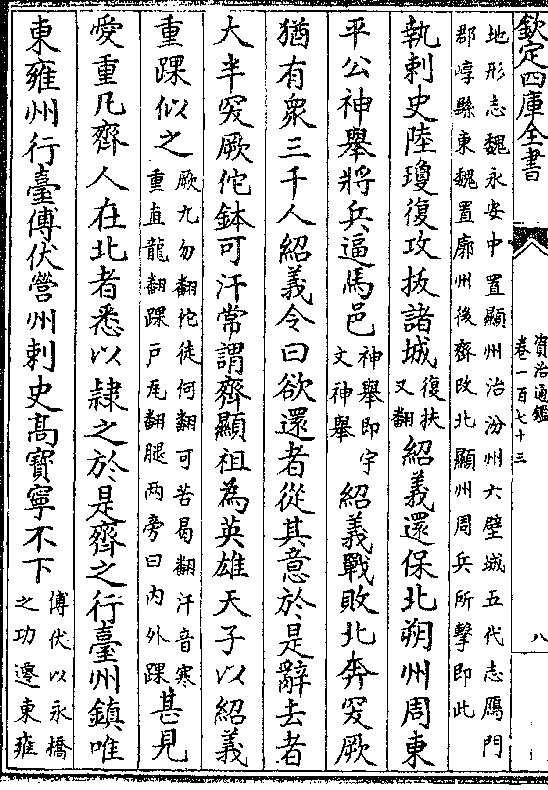 欽定四庫全書
資治通鑑
卷一百七十三
八
地形志魏永安中置顯州治汾州六壁城五代志鴈門
郡崞縣東魏置廓州後齊改北顯州周兵所擊即此
執刺史陸瓊復攻拔諸城復扶又翻紹義還保北朔州周東
平公神舉將兵逼馬邑神舉即宇文神舉紹義戰敗北奔突厥
猶有衆三千人紹義令曰欲還者從其意於是辭去者
大半突厥佗鉢可汗常謂齊顯祖為英雄天子以紹義
重踝似之厥九勿翻佗徒何翻可苦曷翻汗音寒重直龍翻踝戶瓦翻腿两旁曰内外踝甚見
愛重凡齊人在北者悉以隷之於是齊之行臺州鎮唯
東雍州行臺傅伏營州刺史髙寶寧不下傅伏以永橋之功遷東雍